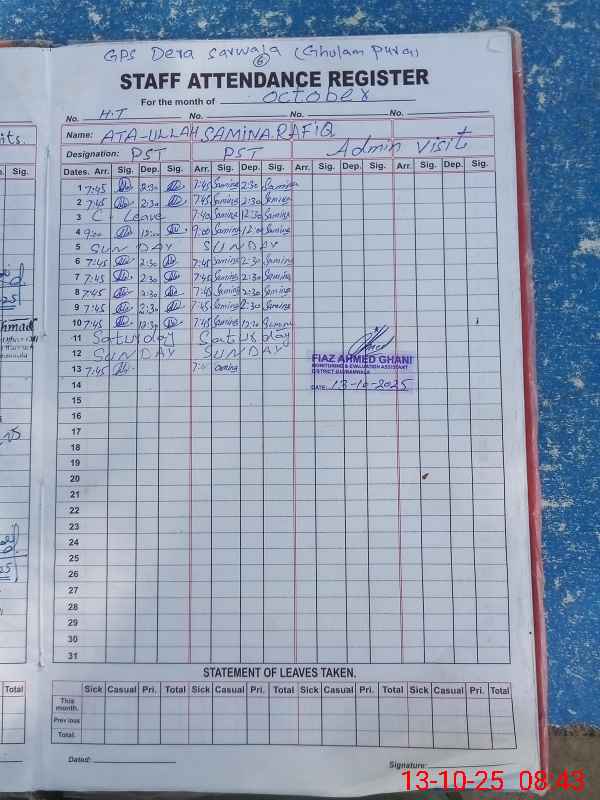 GPS Dera Sarwala (Ghulam Pura)
6
STAFF ATTENDANCE REGISTER
For the month of October
No. H.T No. No. No.
Name: ATA-ULLAH SAMINA RAFIQ
Designation: PST PST Admin Visit
Dates. Arr. Sig. Dep. Sig. Arr. Sig. Dep. Sig. Arr. Sig. Dep. Sig. Arr. Sig. Dep. Sig.
1 7:45 2:30 7:45 Samina 2:30 Samina
2 7:45 2:30 7:45 Samina 2:30 Samina
3 C - Leave 7:40 Samina 12:30 Samina
4 9:00 12:00 9:00 Samina 12:00 Samina
5 SUNDAY SUNDAY
6 7:45 2:30 7:45 Samina 2:30 Samina
7 7:45 2:30 7:45 Samina 2:30 Samina
8 7:45 2:30 7:45 Samina 2:30 Samina
9 7:45 2:30 7:45 Samina 2:30 Samina
10 7:45 12:30 7:45 Samina 12:30 Samina
11 Saturday Saturday
12 SUNDAY SUNDAY
FIAZ AHMED GHANI
MONITORING & EVALUATION ASSISTANT
DISTRICT GUJRANWALA
13 7:45
DATE: 13-10-2025
14
15
16
17
18
19
20
21
22
23
24
25
26
27
28
29
30
31
STATEMENT OF LEAVES TAKEN.
Total Sick Casual Pri. Total Sick Casual Pri. Total Sick Casual Pri. Total Sick Casual Pri. Total
This month.
Previous
Total.
Dated: Signature:
13-10-25 08:43